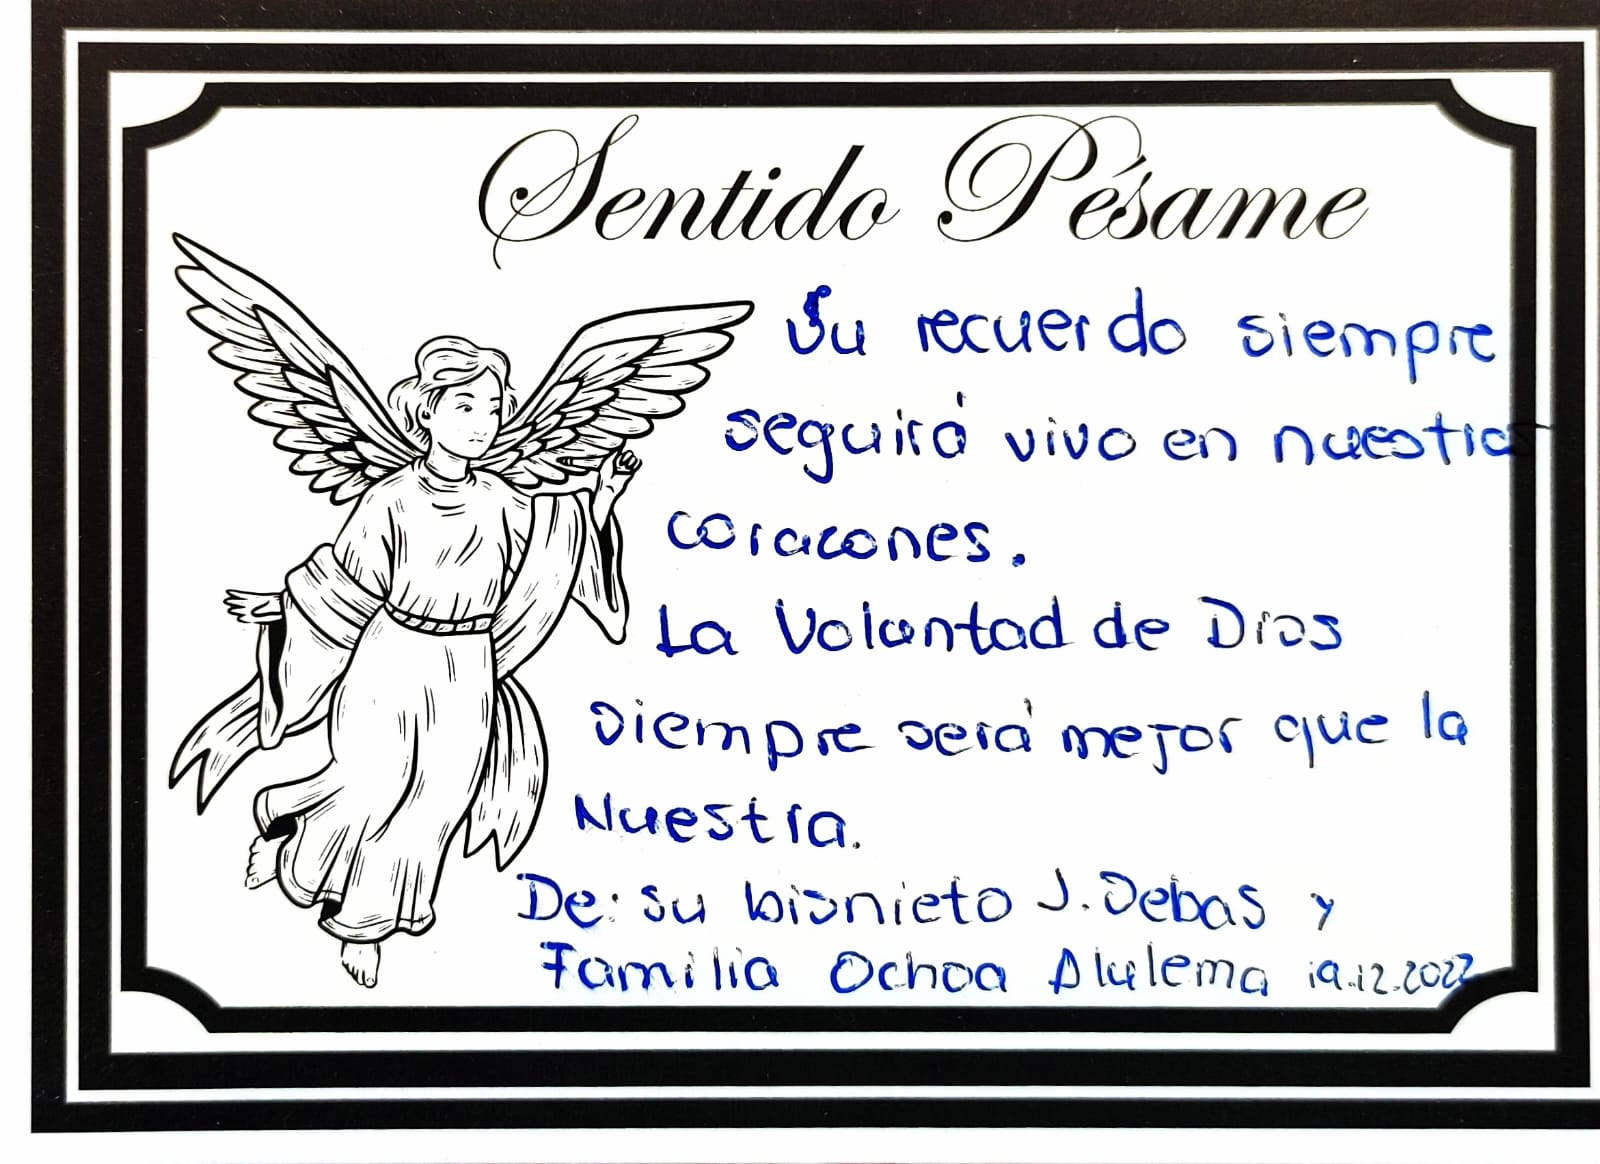 Sentido Pésame
Su recuerdo siempre
seguirá vivo en nuestros
coracones.
La Voluntad de Dios
siempre será mejor que la
Nuestra.
De: su bisnieto J. Sebas y
Familia Ochoa Alulema 19.12.2022